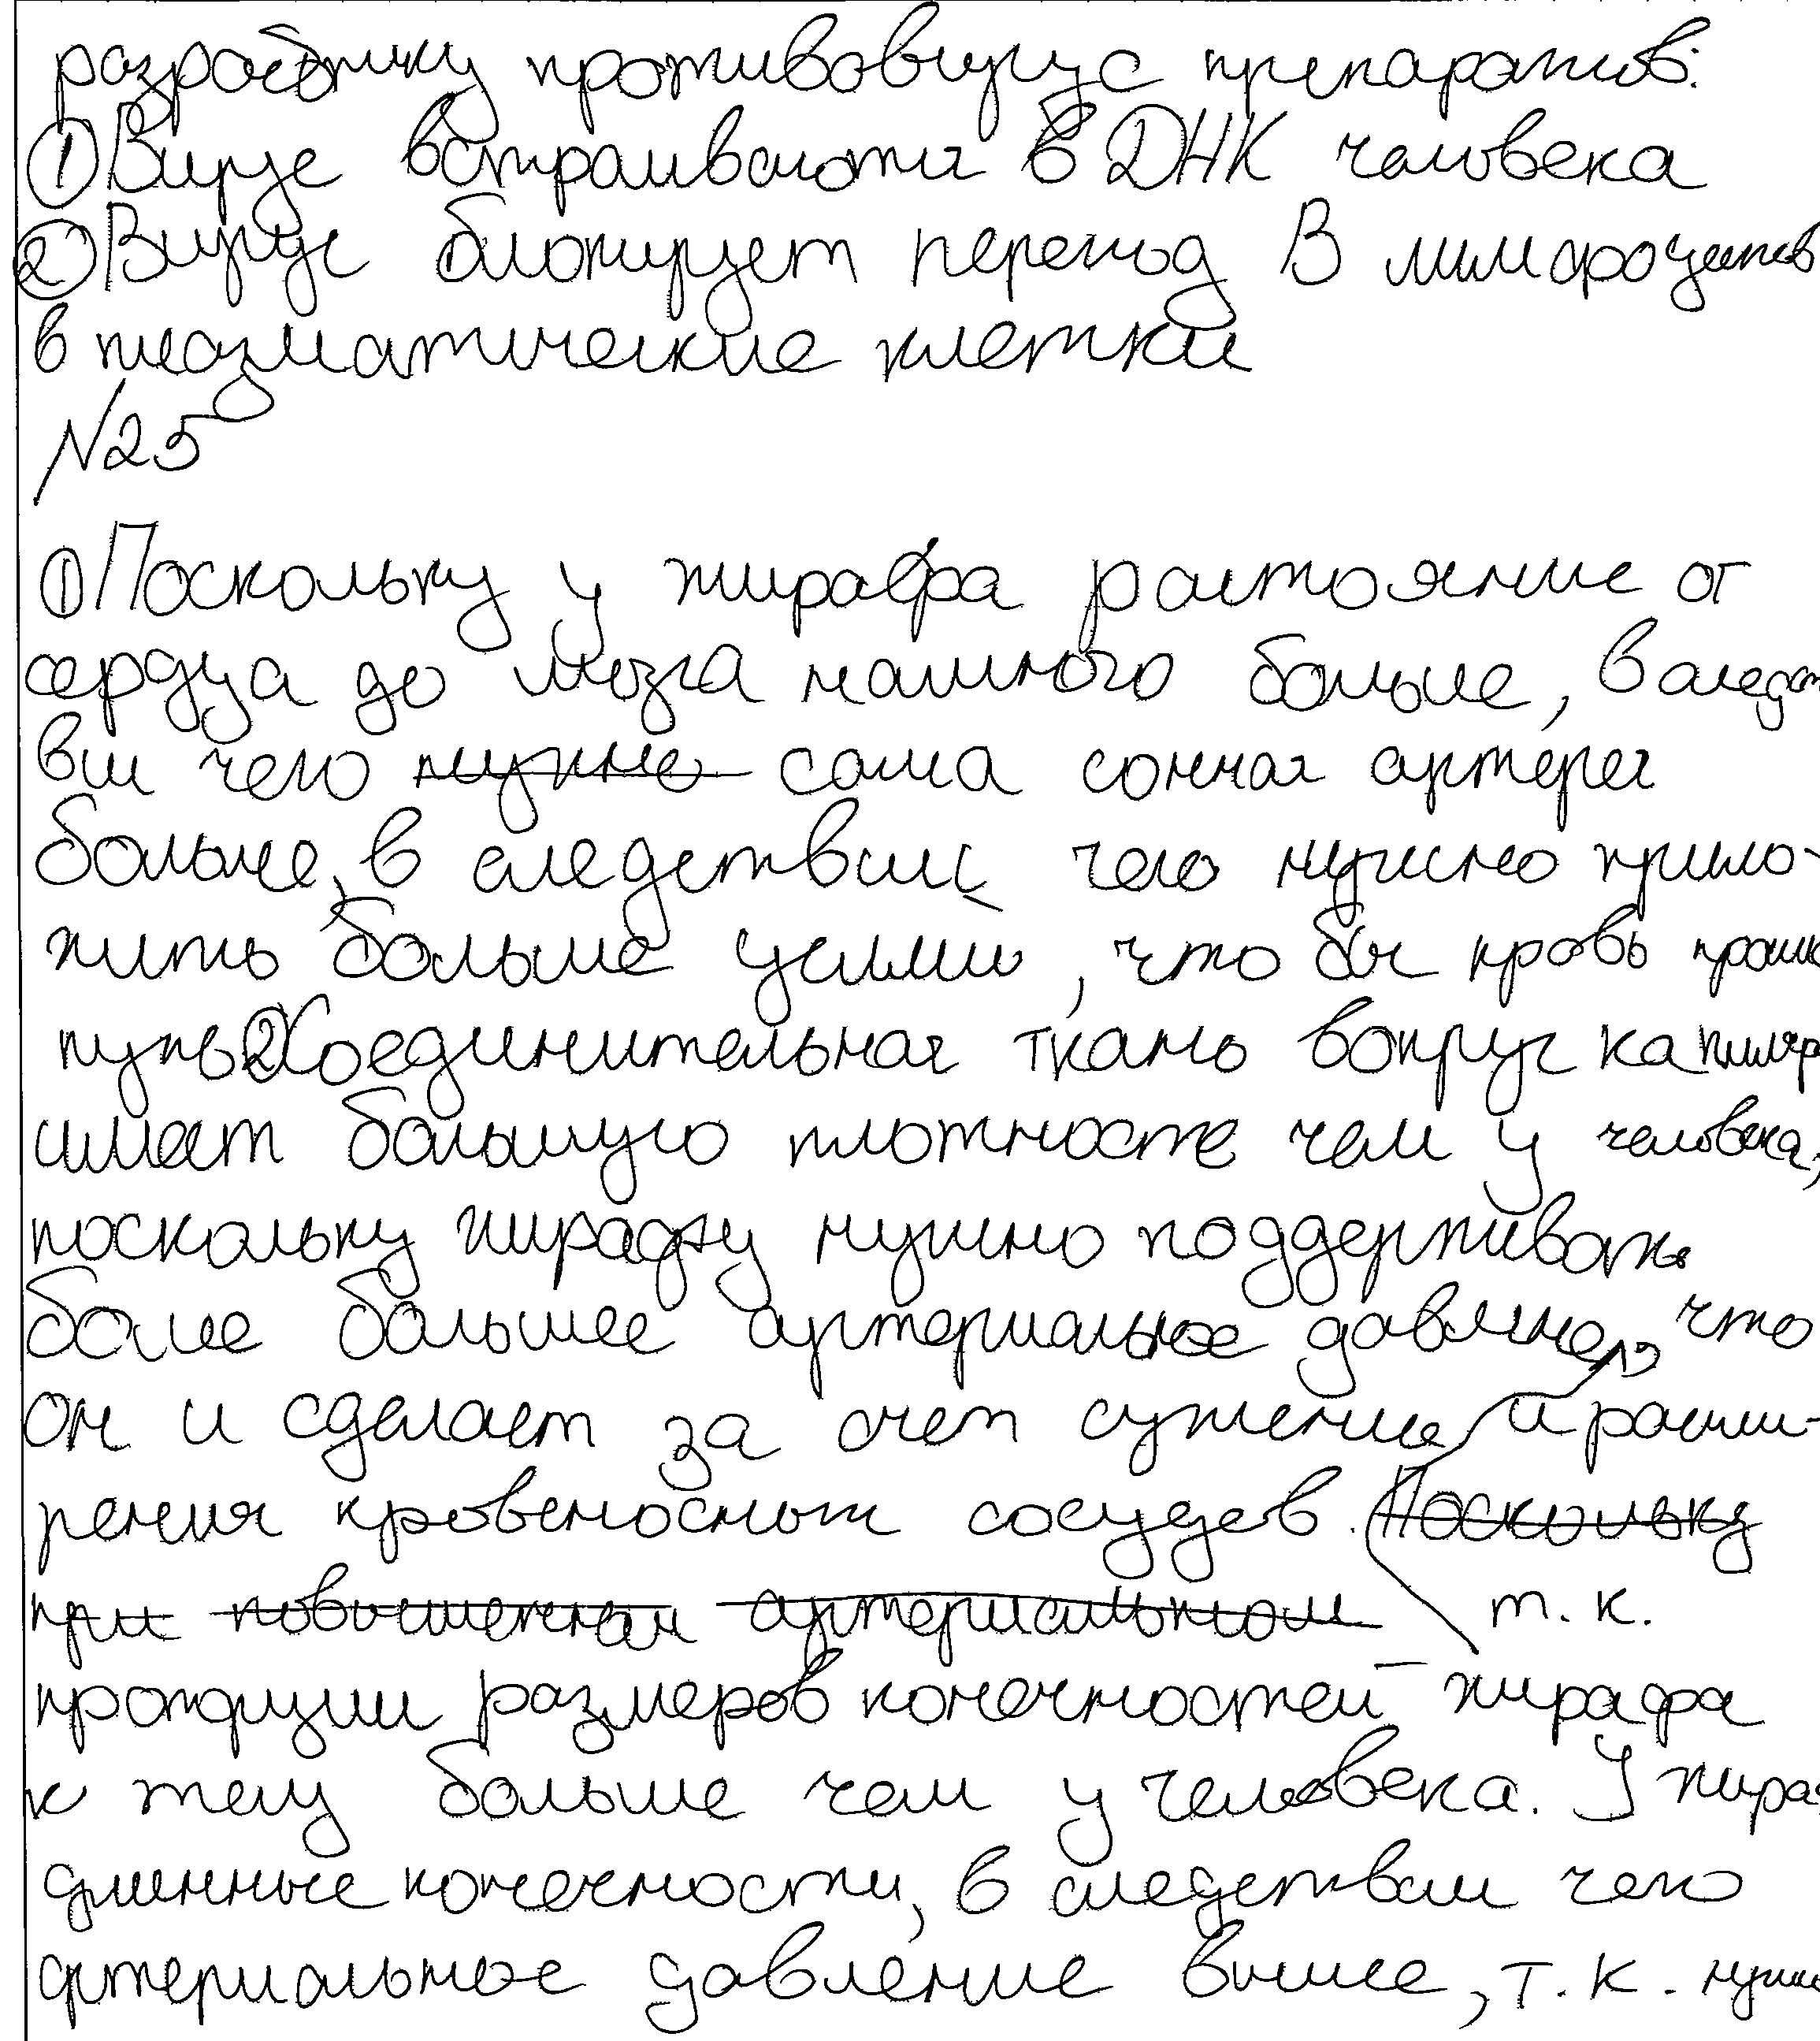 разработку противовирус препаратов:
① Вирус встраивается в ДНК человека
② Вирус блокирует переход В лимфоцитов
в плазматические клетки
№25
① Поскольку у жирафа растояние от
сердца до мозга намного больше, в следст
вии чего нужно сама сонная артерия
больше, в следствии чего нужно прило-
жить больше усилий, что бы кровь прошла
путь ② Соединительная ткань вокруг капиляр
имеет большую плотность чем у человека,
поскольку жирафу нужно поддерживать
более большее артериальное давление, что
он и сделает за счет сужение и расши-
рения кровеносных сосудов. Поскольку
при повышенном артериальном т.к.
пропорции размеров конечностей жирафа
к телу больше чем у человека. У жира
длинные конечности, в следствии чего
артериальное давление выше, т.к. нужно